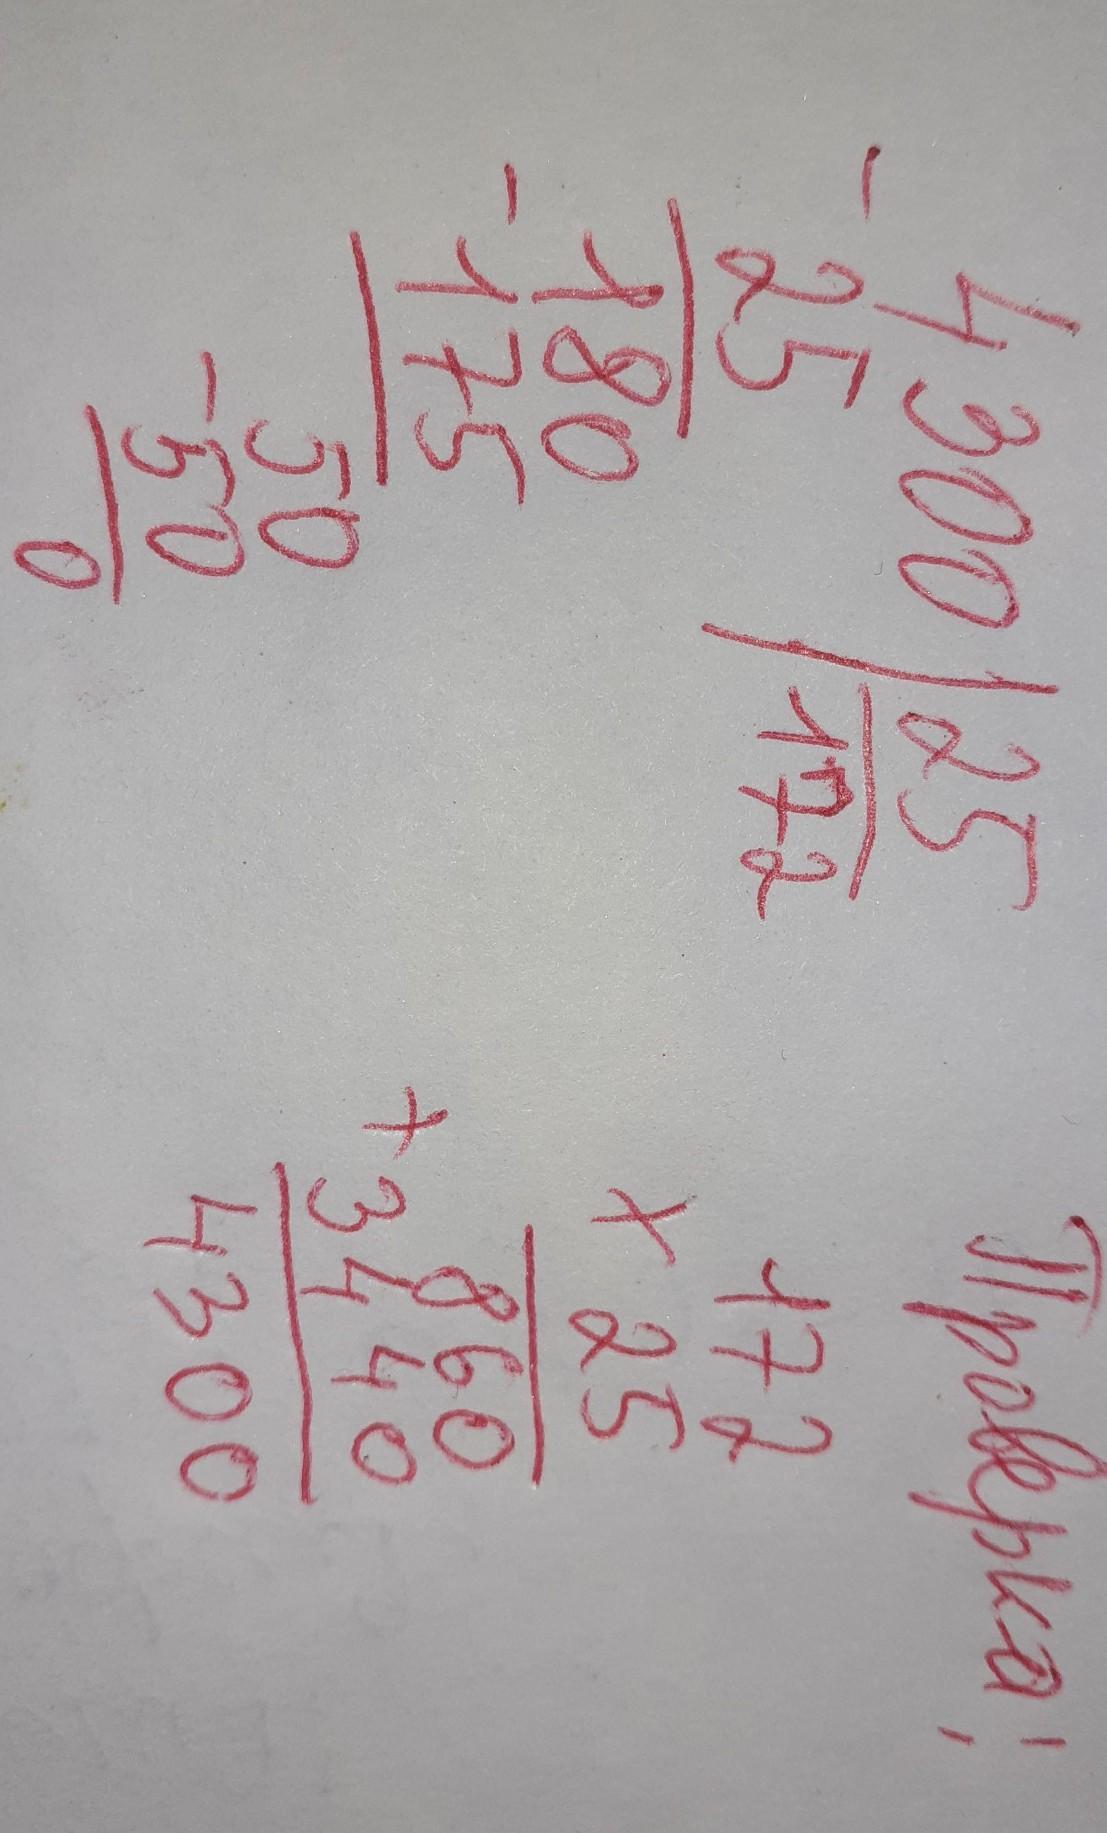 4300 | 25
- 25 172
180
- 175
50
- 50
0
Проверка:
172
x 25
860
+ 3440
4300